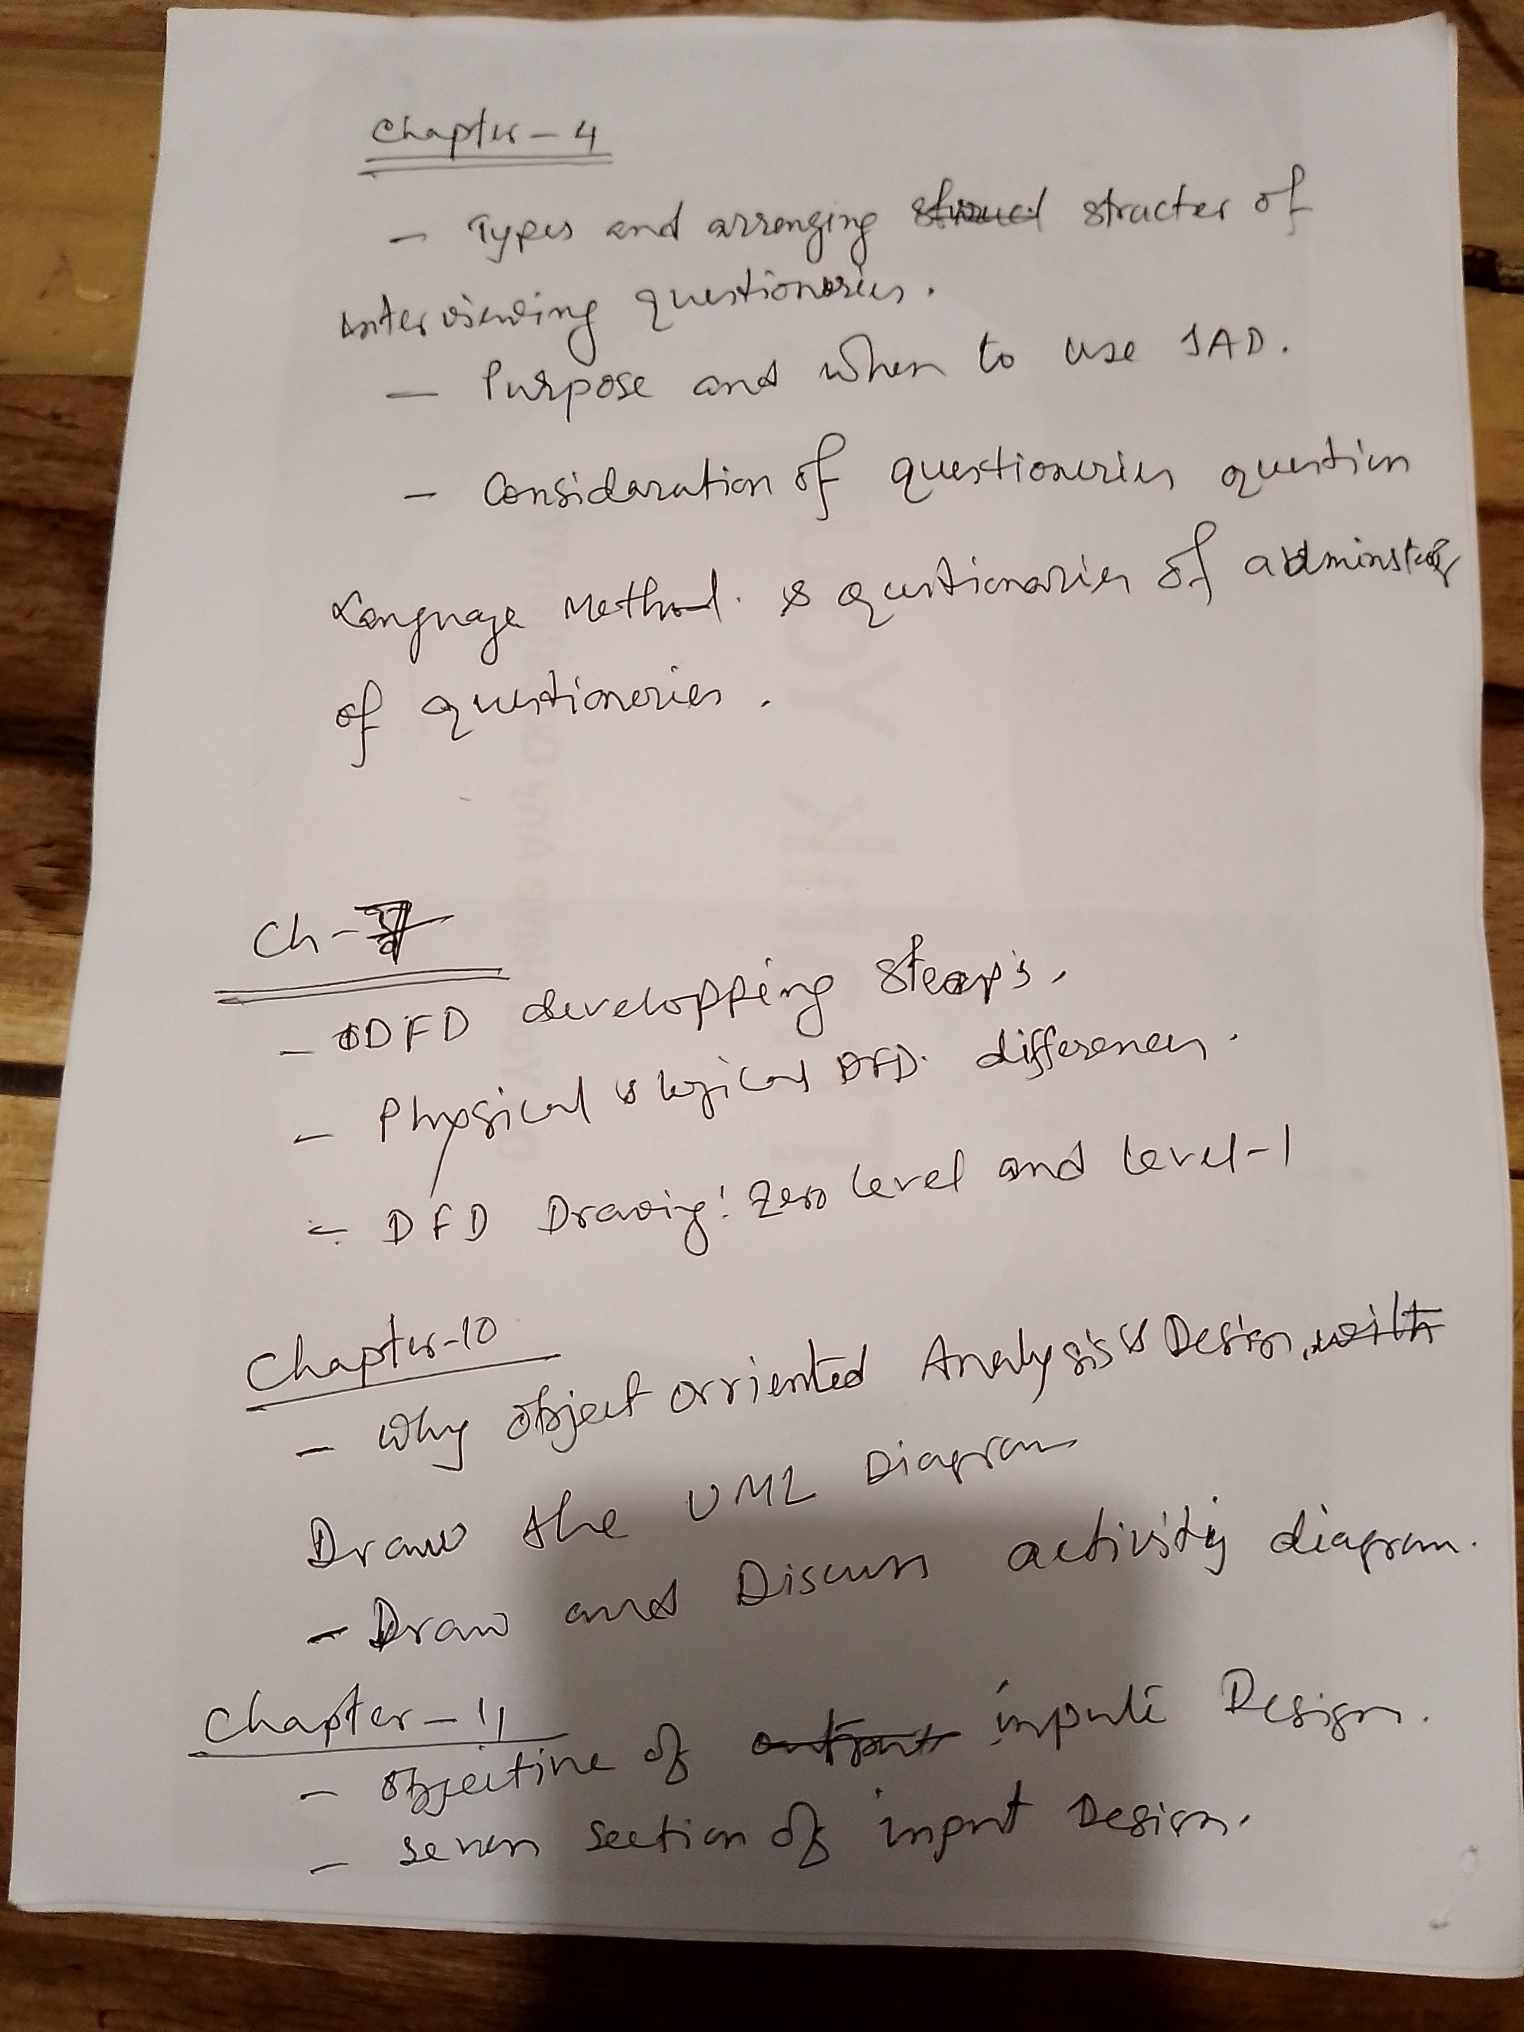 Chapter - 4
- Types and arrenging structer of
interviewing questioneries.
- Purpose and when to use JAD.
- Considaration of questioneries question
Language Method. & questionaries of adminster
of questioneries.
Ch - 7
- DFD developping steaps.
- Physical & logical DFD. differences.
- DFD Drawing: Zero level and level-1
Chapter-10
- Why object orriented Analysis & Design, with
Draw the UML Diagram
- Draw and Discuss activity diagram.
Chapter - 11
- objective of output input Design.
- seven section of input Design.